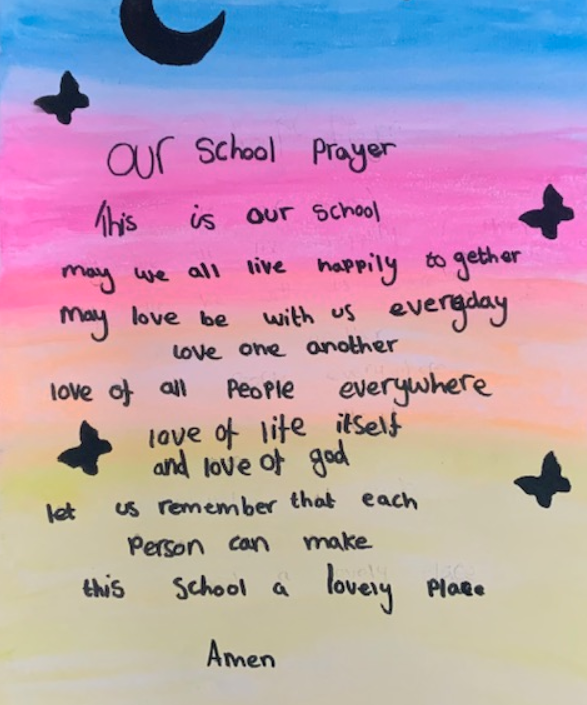 Our School Prayer
This is our school
may we all live happily to gether
May love be with us everyday
love one another
love of all People everywhere
love of life itself
and love of god
let us remember that each
Person can make
this School a lovely Place
Amen